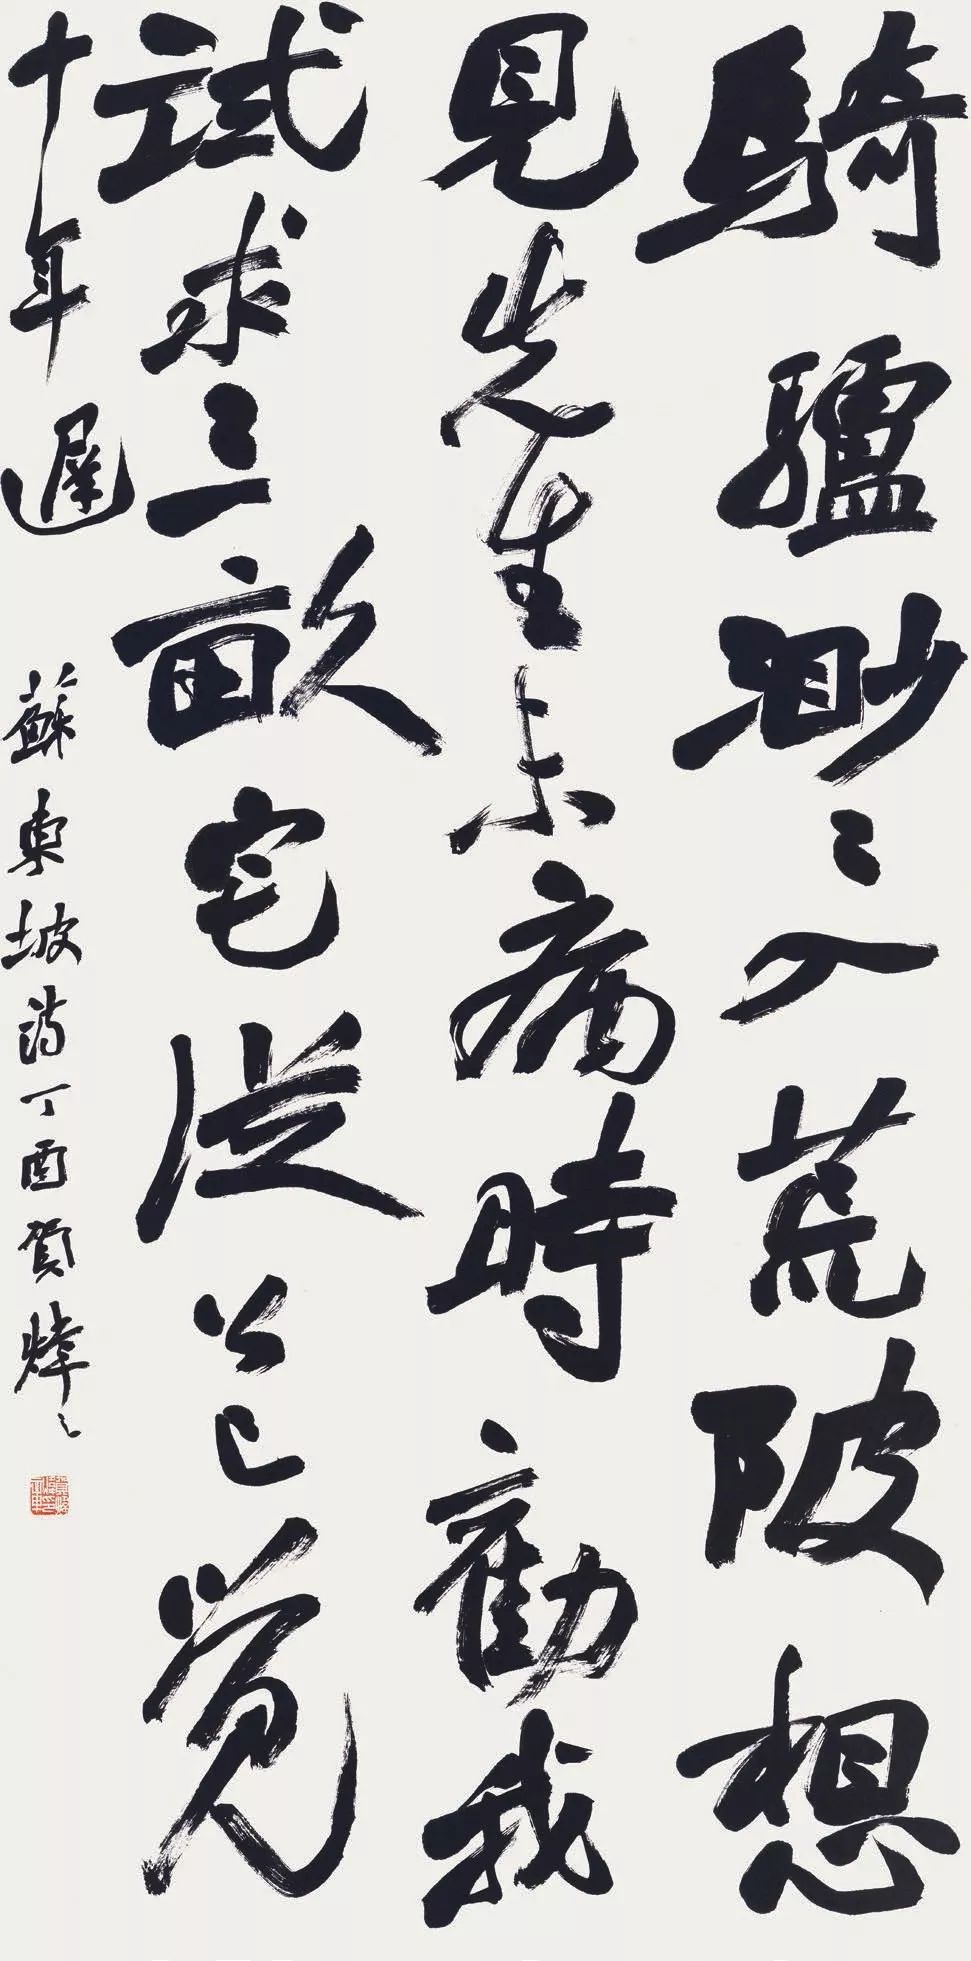 騎驢渺〻入荒陂想
見先生未病時勸我
試求三畝宅從公已覺
十年遲
蘇東坡詩丁酉賀煒〻